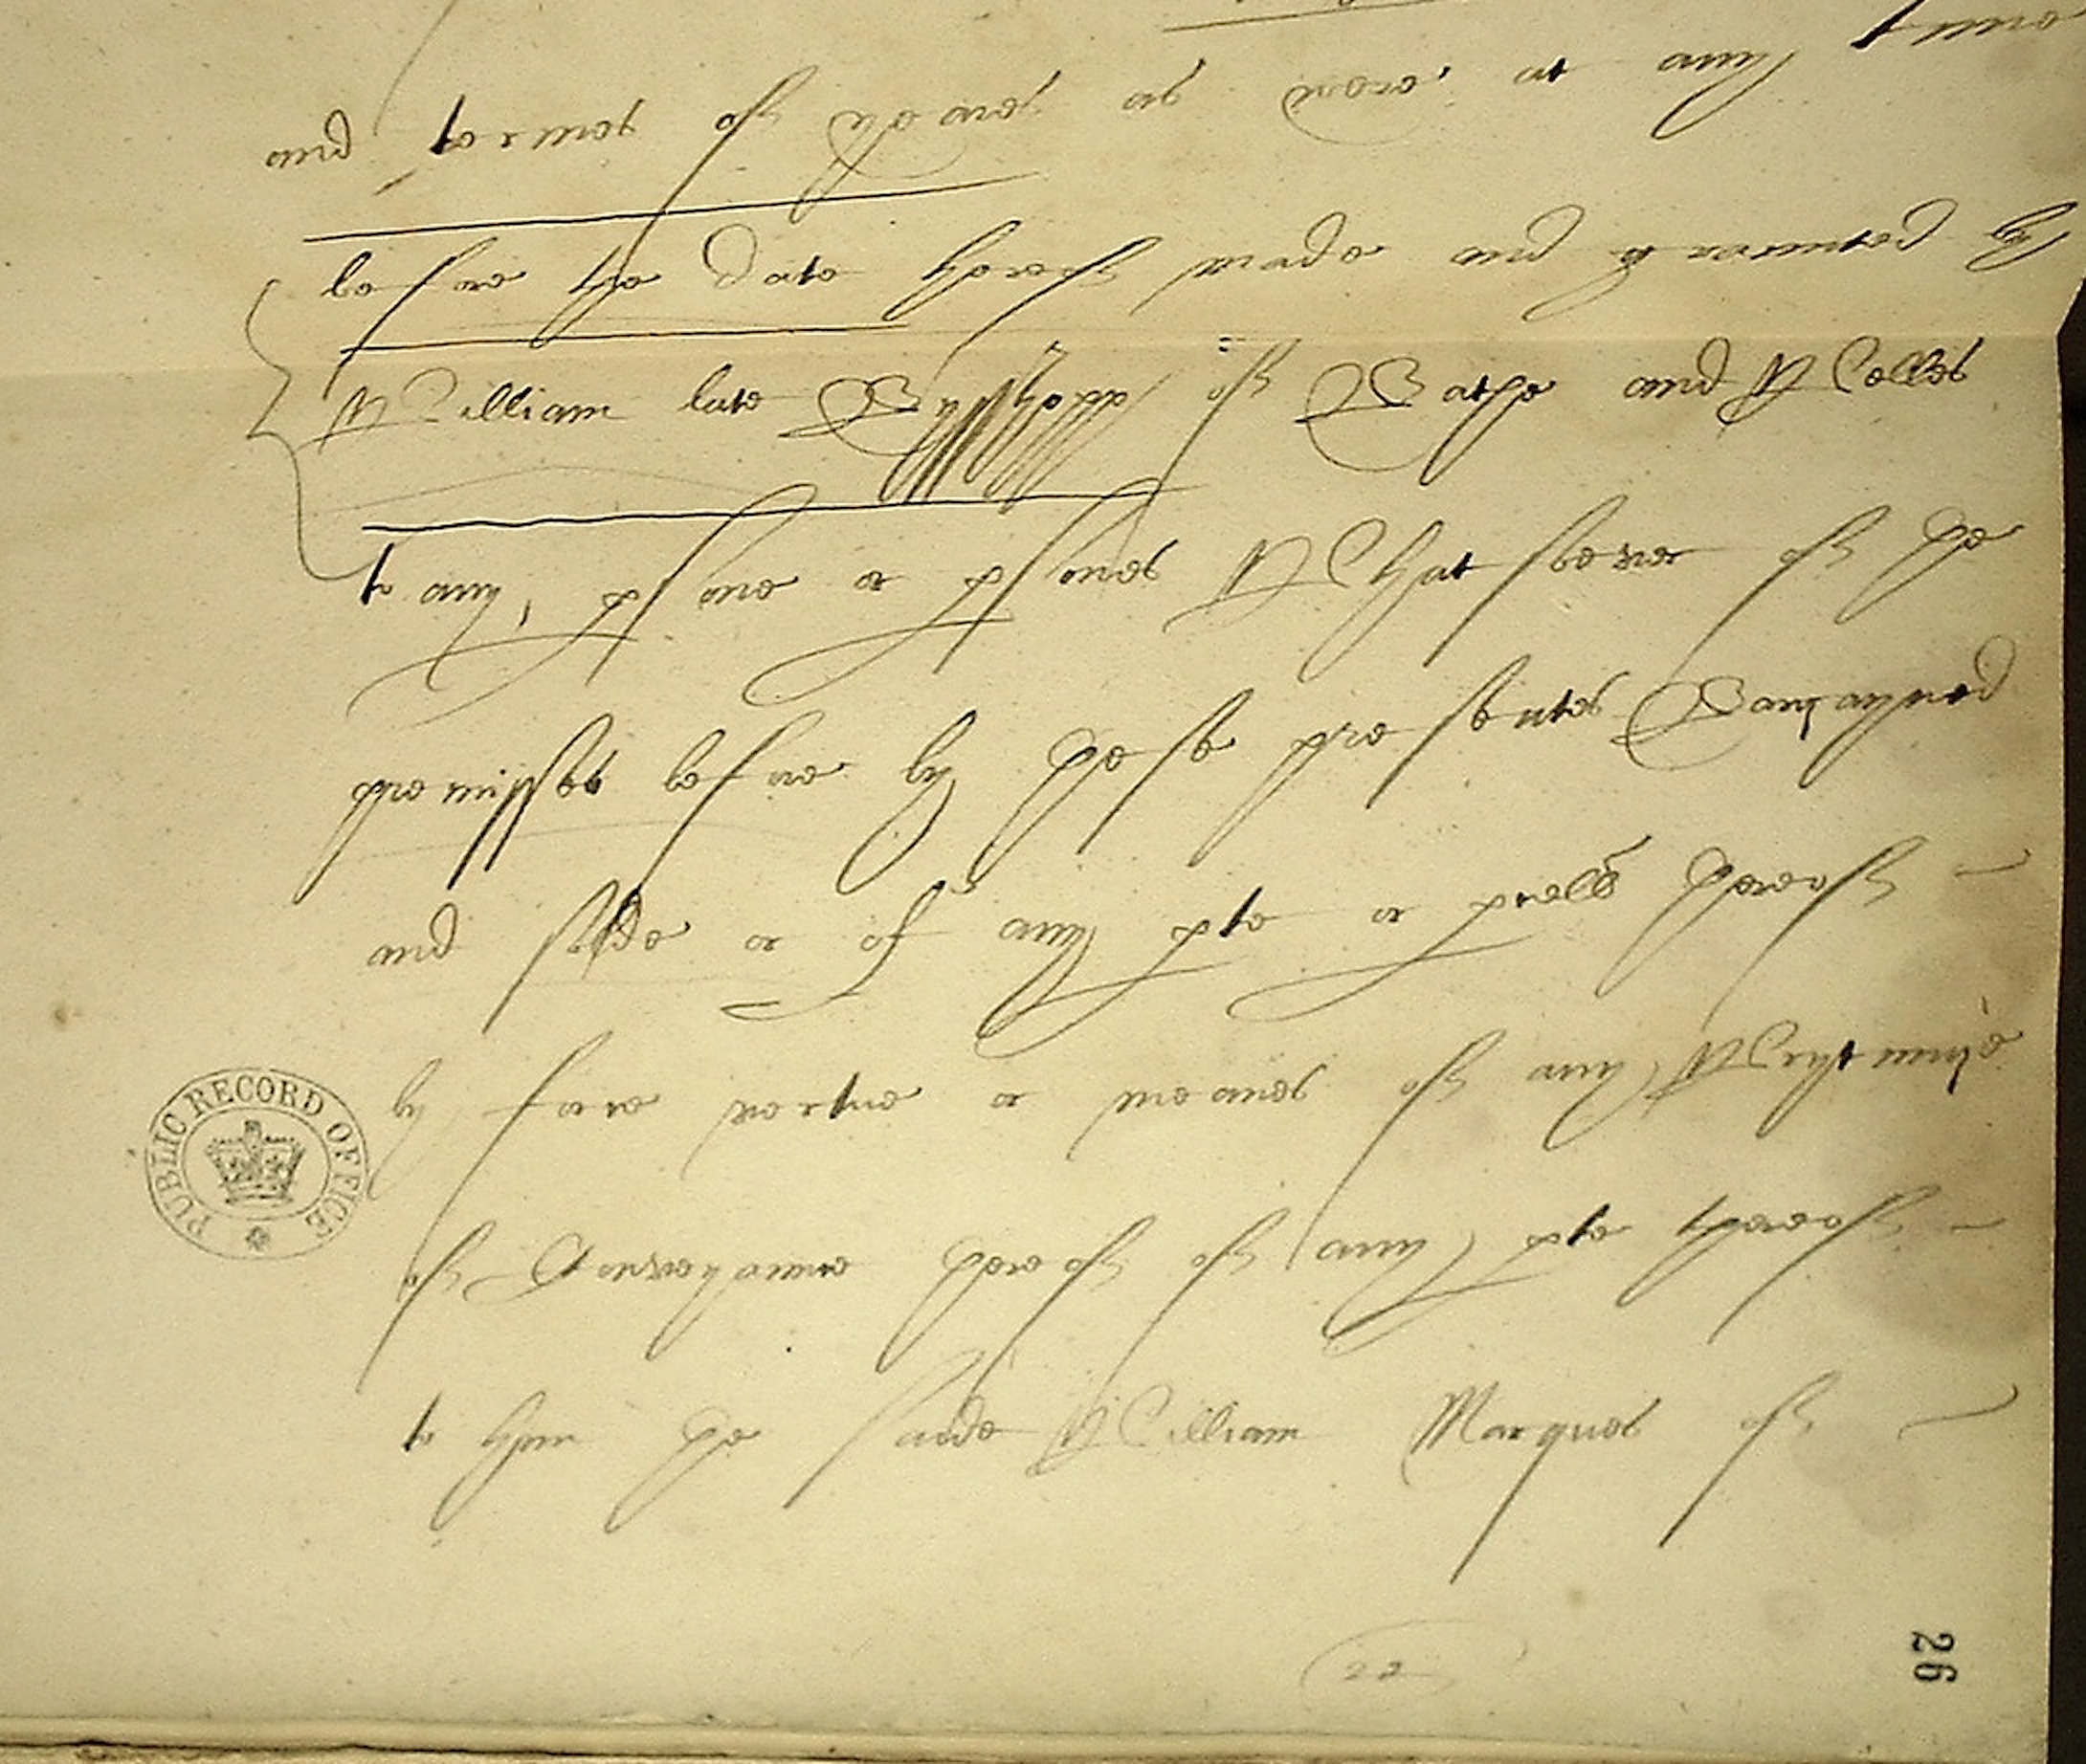 tyme
and termes of yeares as were at any
before the date hereof made and graunted by
William late Bysshopp of Bathe and Welles
to any psone or psones Whatsoever of the
premisses before by these presentes Bargayned
and solde or of any pte or pcell thereof
by force vertue or meanes of any Wrytinge
of Conveyaunce thereof of any pte thereof
to hym the saide William Marques of
PUBLIC RECORD OFFICE
22
26